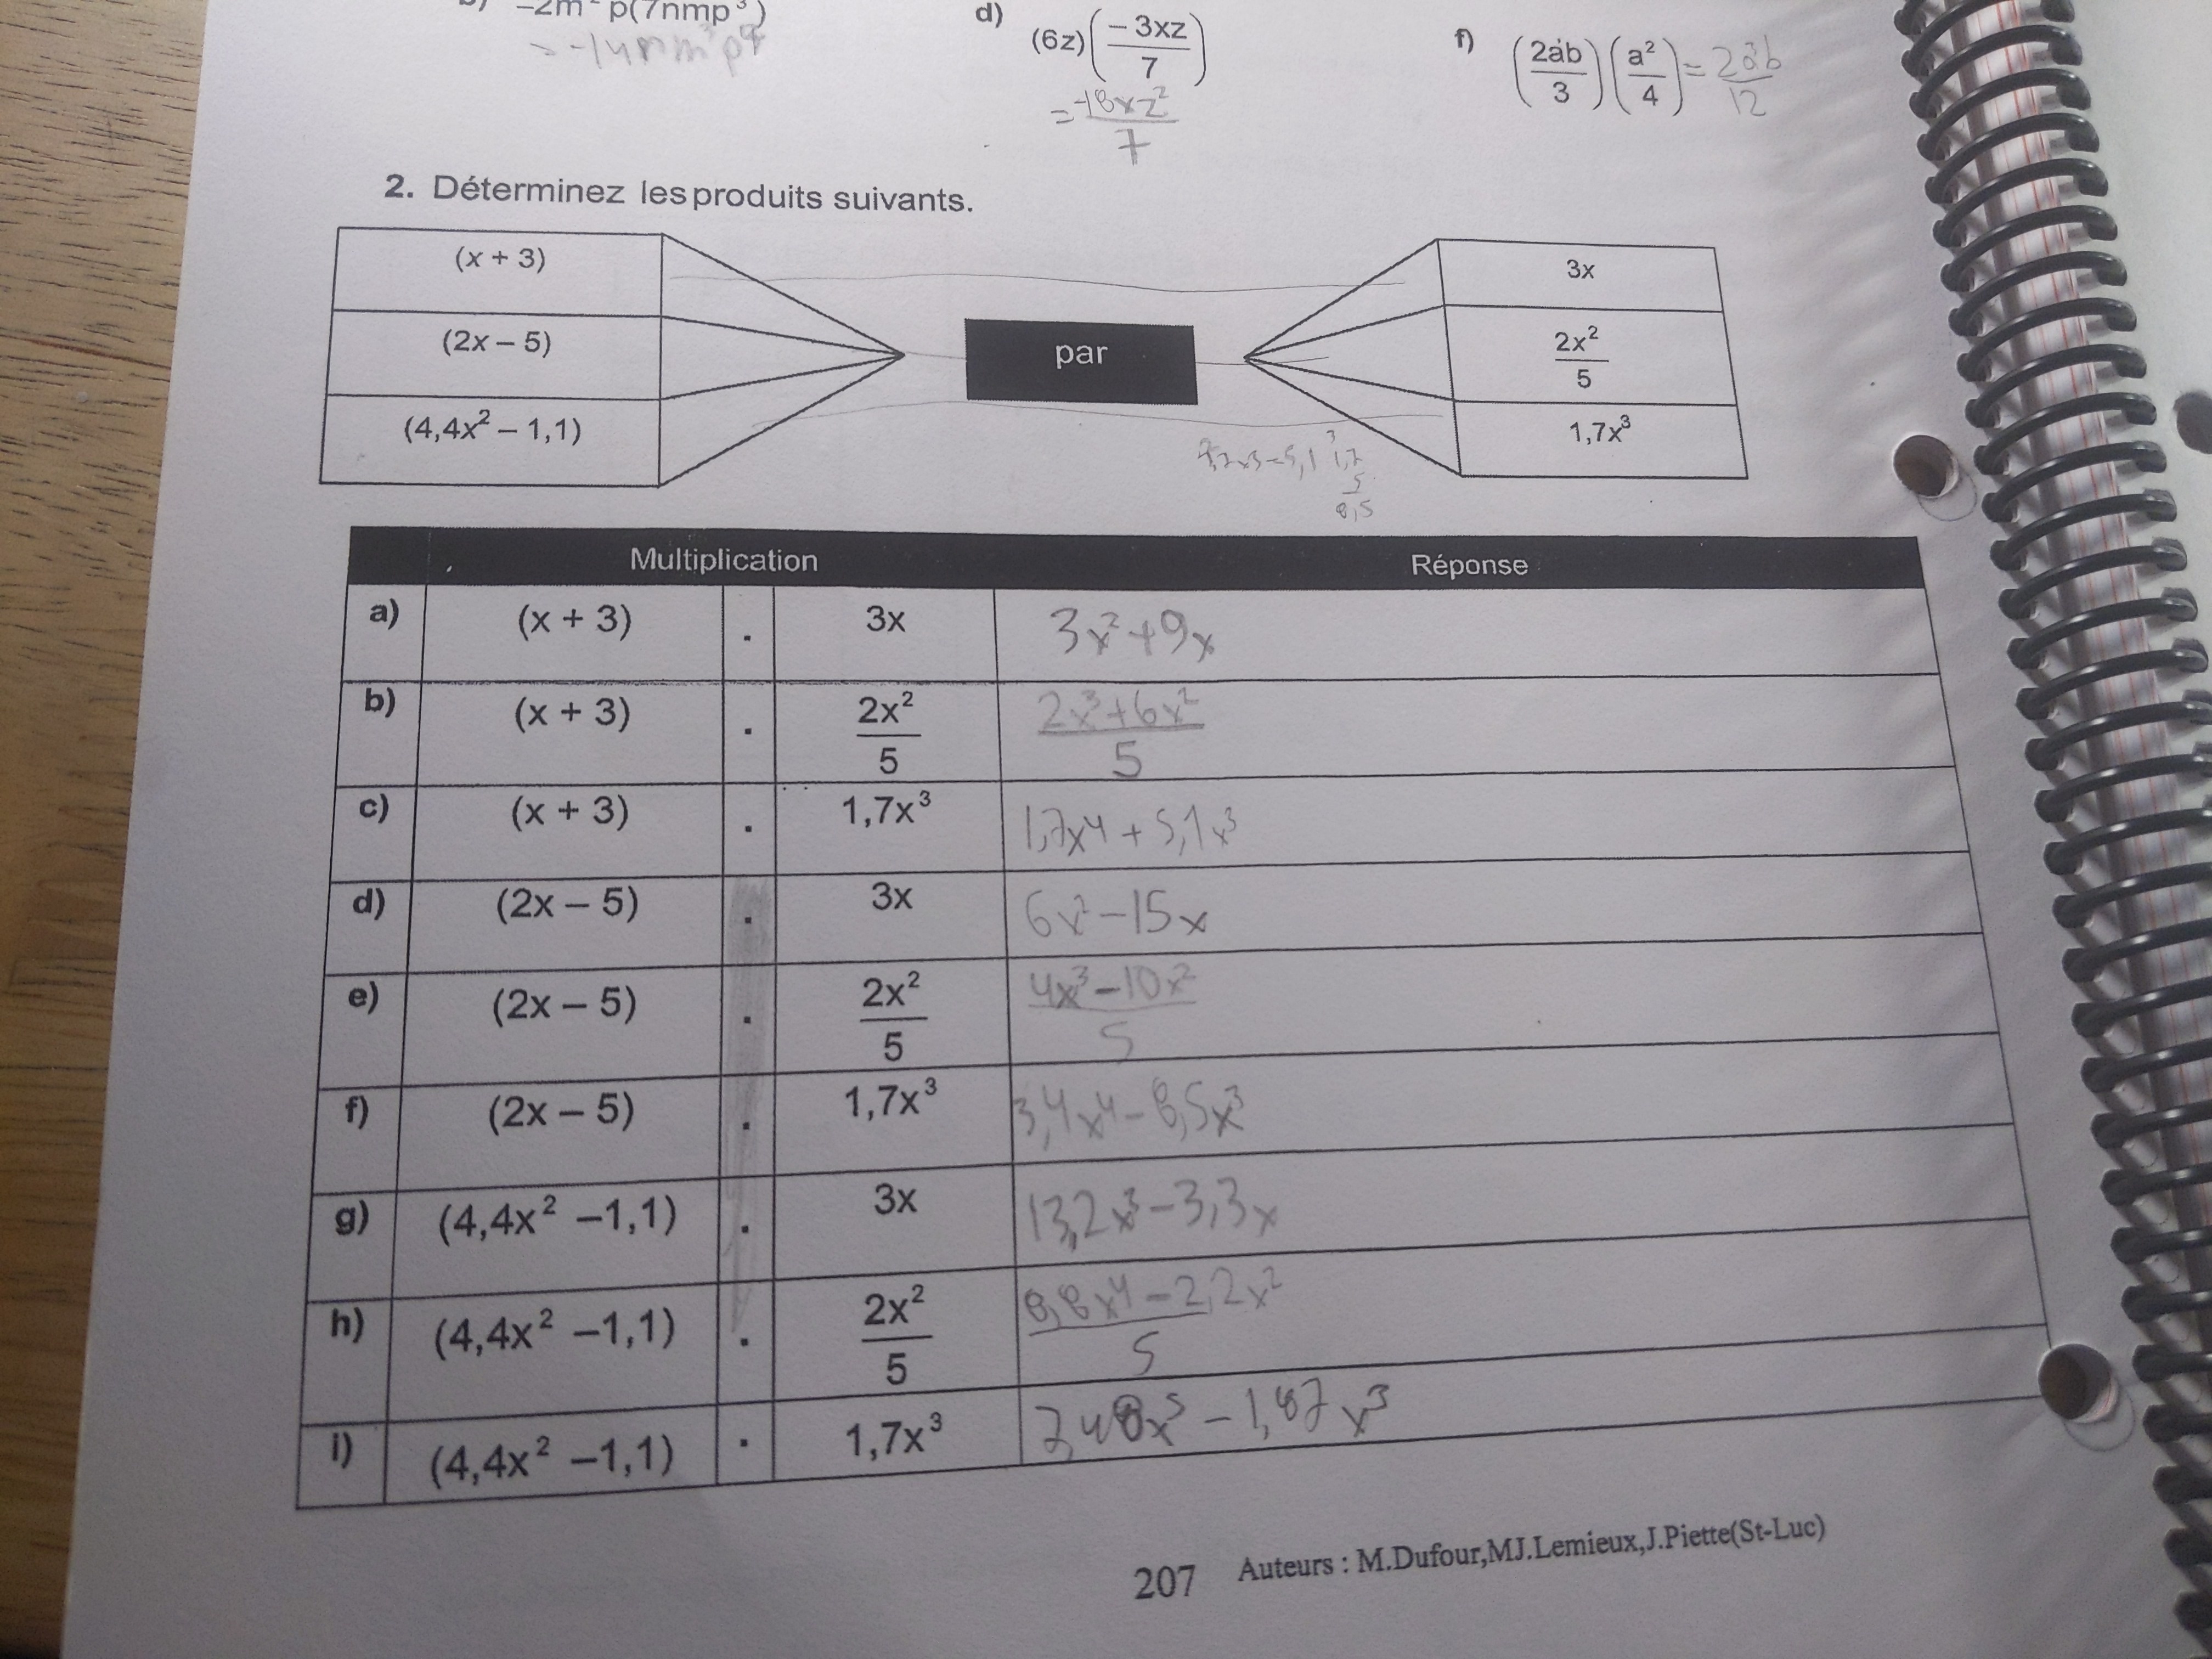 b) –2m² p(7nmp³)
= -14nm³p⁴
d) (6z)(– 3xz / 7)
= -18xz² / 7
f) (2ab / 3)(a² / 4) = 2a³b / 12
2. Déterminez les produits suivants.
(x + 3)
(2x – 5)
(4,4x² – 1,1)
par
3x
2x² / 5
1,7x³
1,7x3=5,1
1,7
5
8,5
Multiplication Réponse
a) (x + 3) . 3x 3x²+9x
b) (x + 3) . 2x² / 5 2x³+6x² / 5
c) (x + 3) . 1,7x³ 1,7x⁴ + 5,1x³
d) (2x – 5) . 3x 6x²-15x
e) (2x – 5) . 2x² / 5 4x³-10x² / 5
f) (2x – 5) . 1,7x³ 3,4x⁴-8,5x³
g) (4,4x² –1,1) . 3x 13,2x³-3,3x
h) (4,4x² –1,1) . 2x² / 5 8,8x⁴-2,2x² / 5
i) (4,4x² –1,1) . 1,7x³ 7,48x⁵ - 1,87x³
207 Auteurs : M.Dufour,MJ.Lemieux,J.Piette(St-Luc)